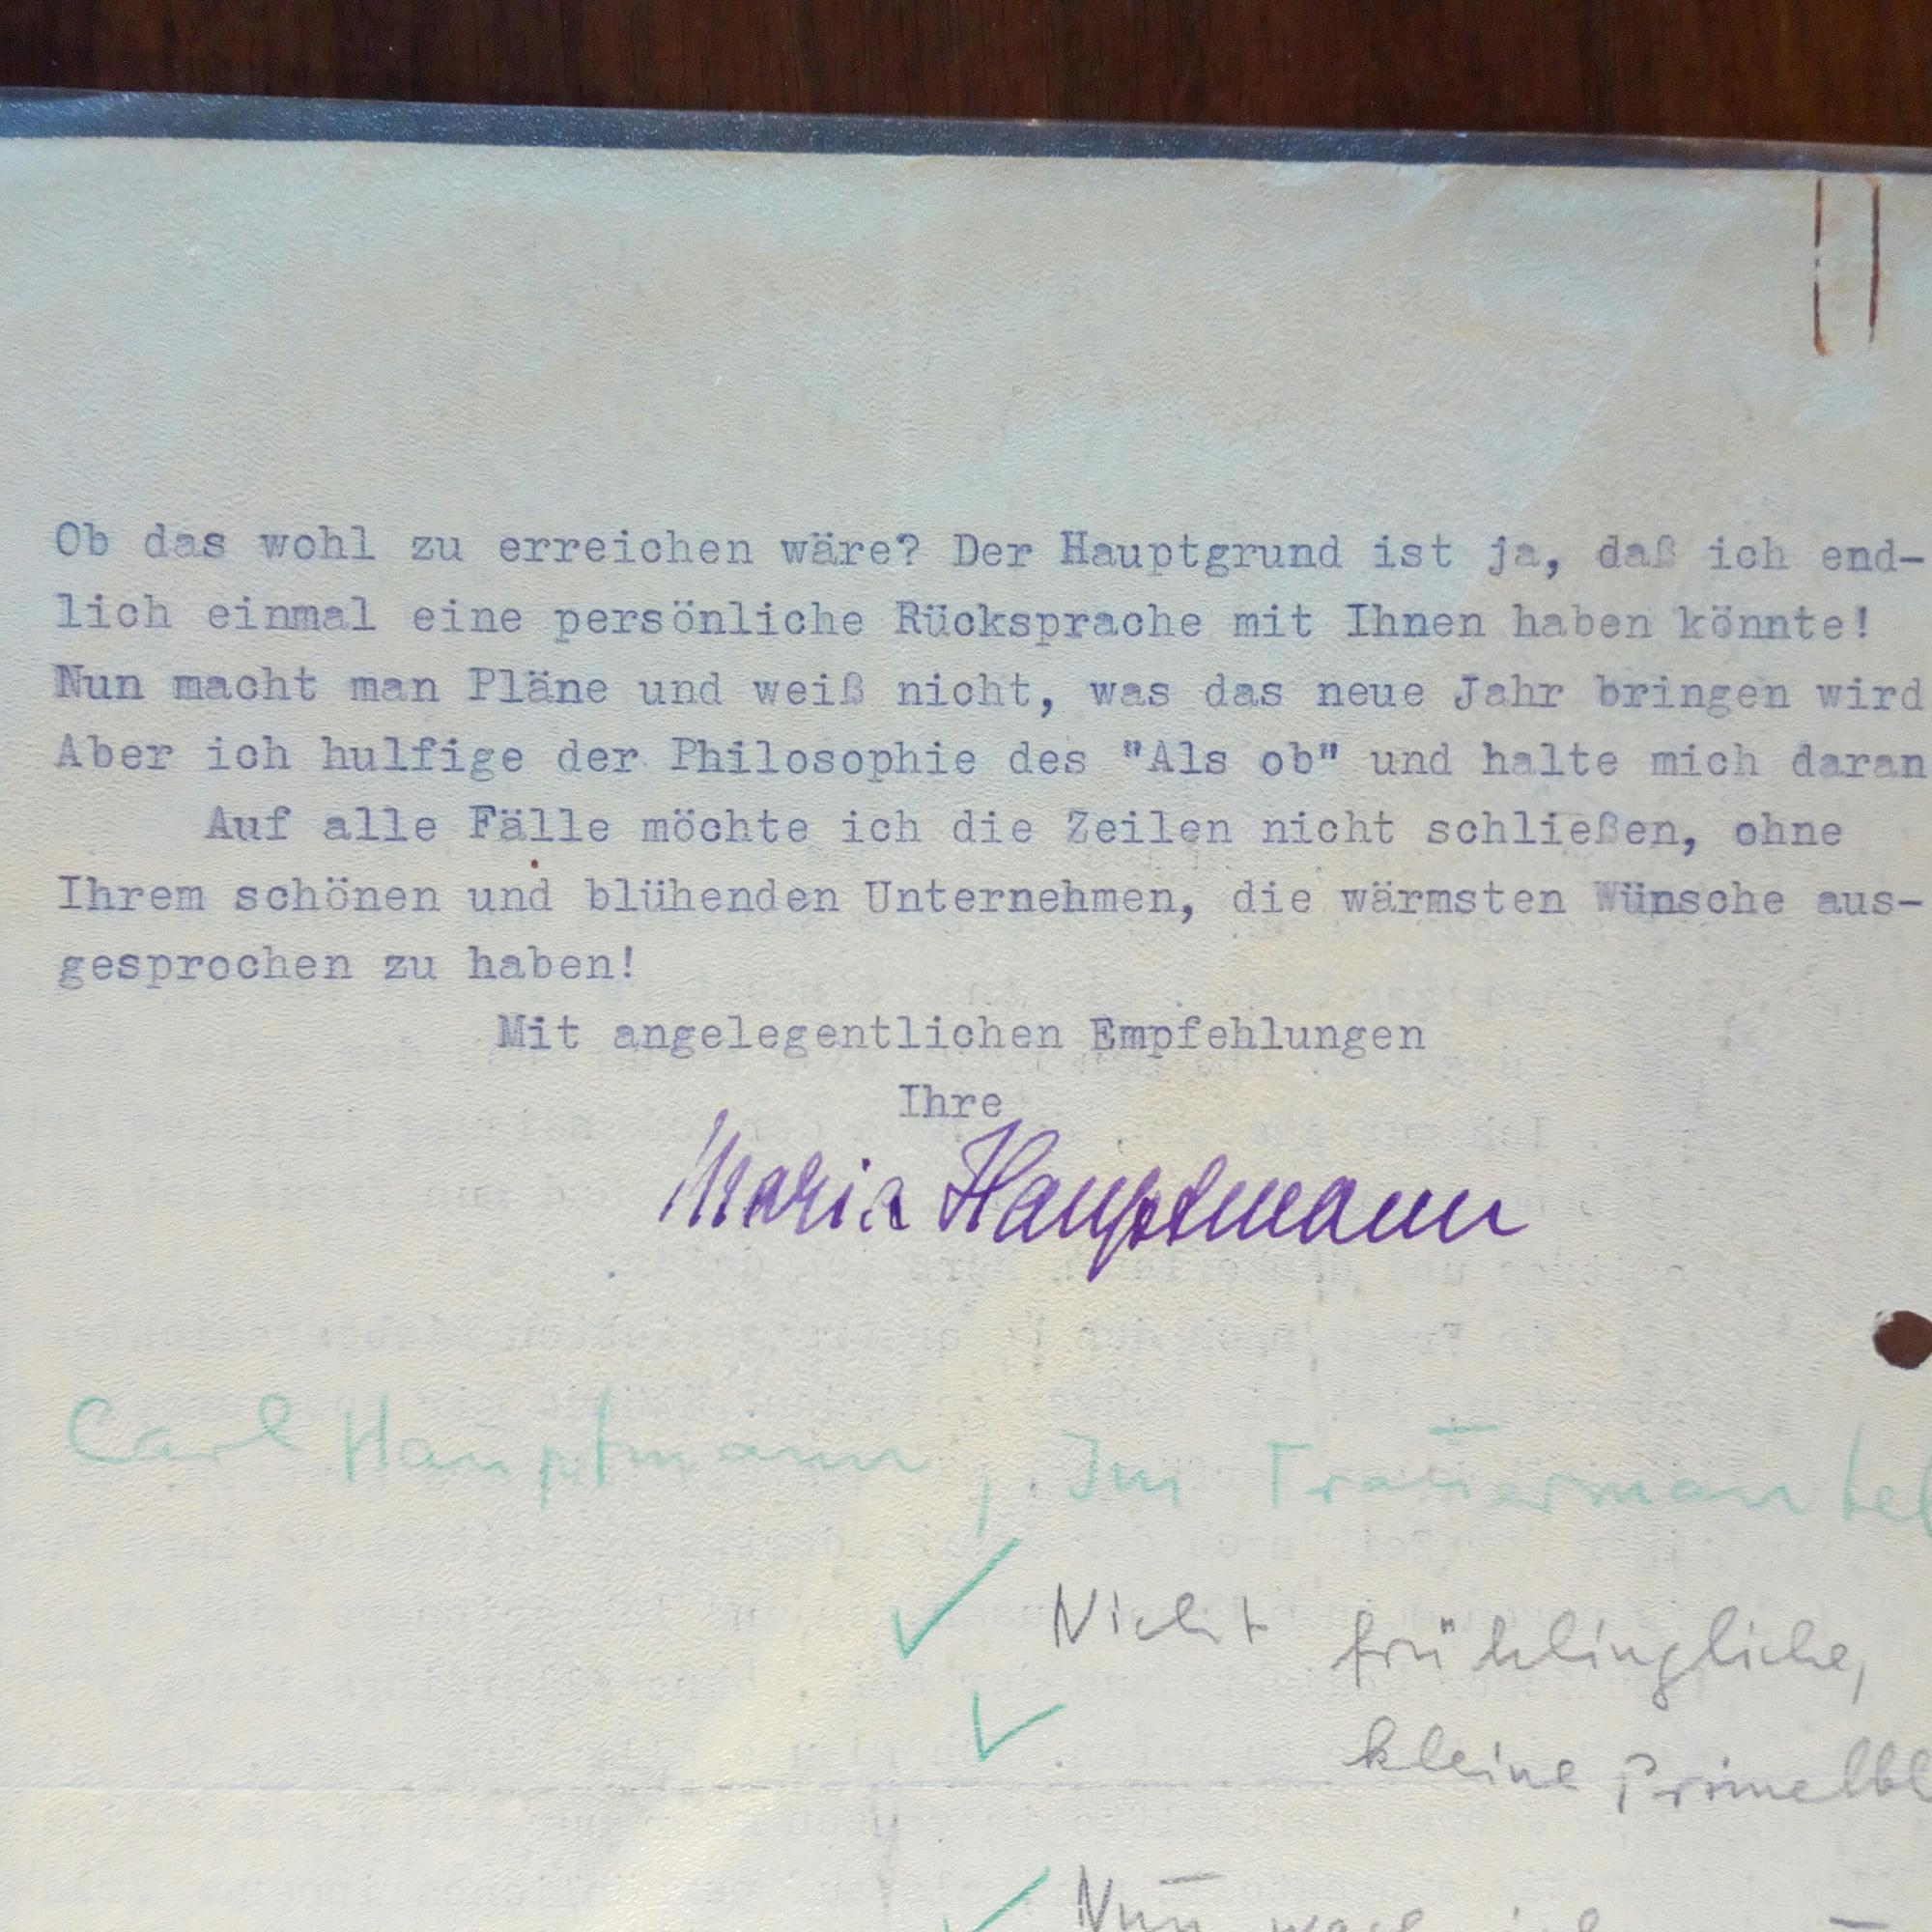 Ob das wohl zu erreichen wäre? Der Hauptgrund ist ja, daß ich end-
lich einmal eine persönliche Rücksprache mit Ihnen haben könnte!
Nun macht man Pläne und weiß nicht, was das neue Jahr bringen wird
Aber ich hulfige der Philosophie des "Als ob" und halte mich daran
Auf alle Fälle möchte ich die Zeilen nicht schließen, ohne
Ihrem schönen und blühenden Unternehmen, die wärmsten Wünsche aus-
gesprochen zu haben!
Mit angelegentlichen Empfehlungen
Ihre
Maria Hauptmann
Carl Hauptmann, Im Trauermantel
Nicht frühlingliche,
kleine Primelbl
Nun